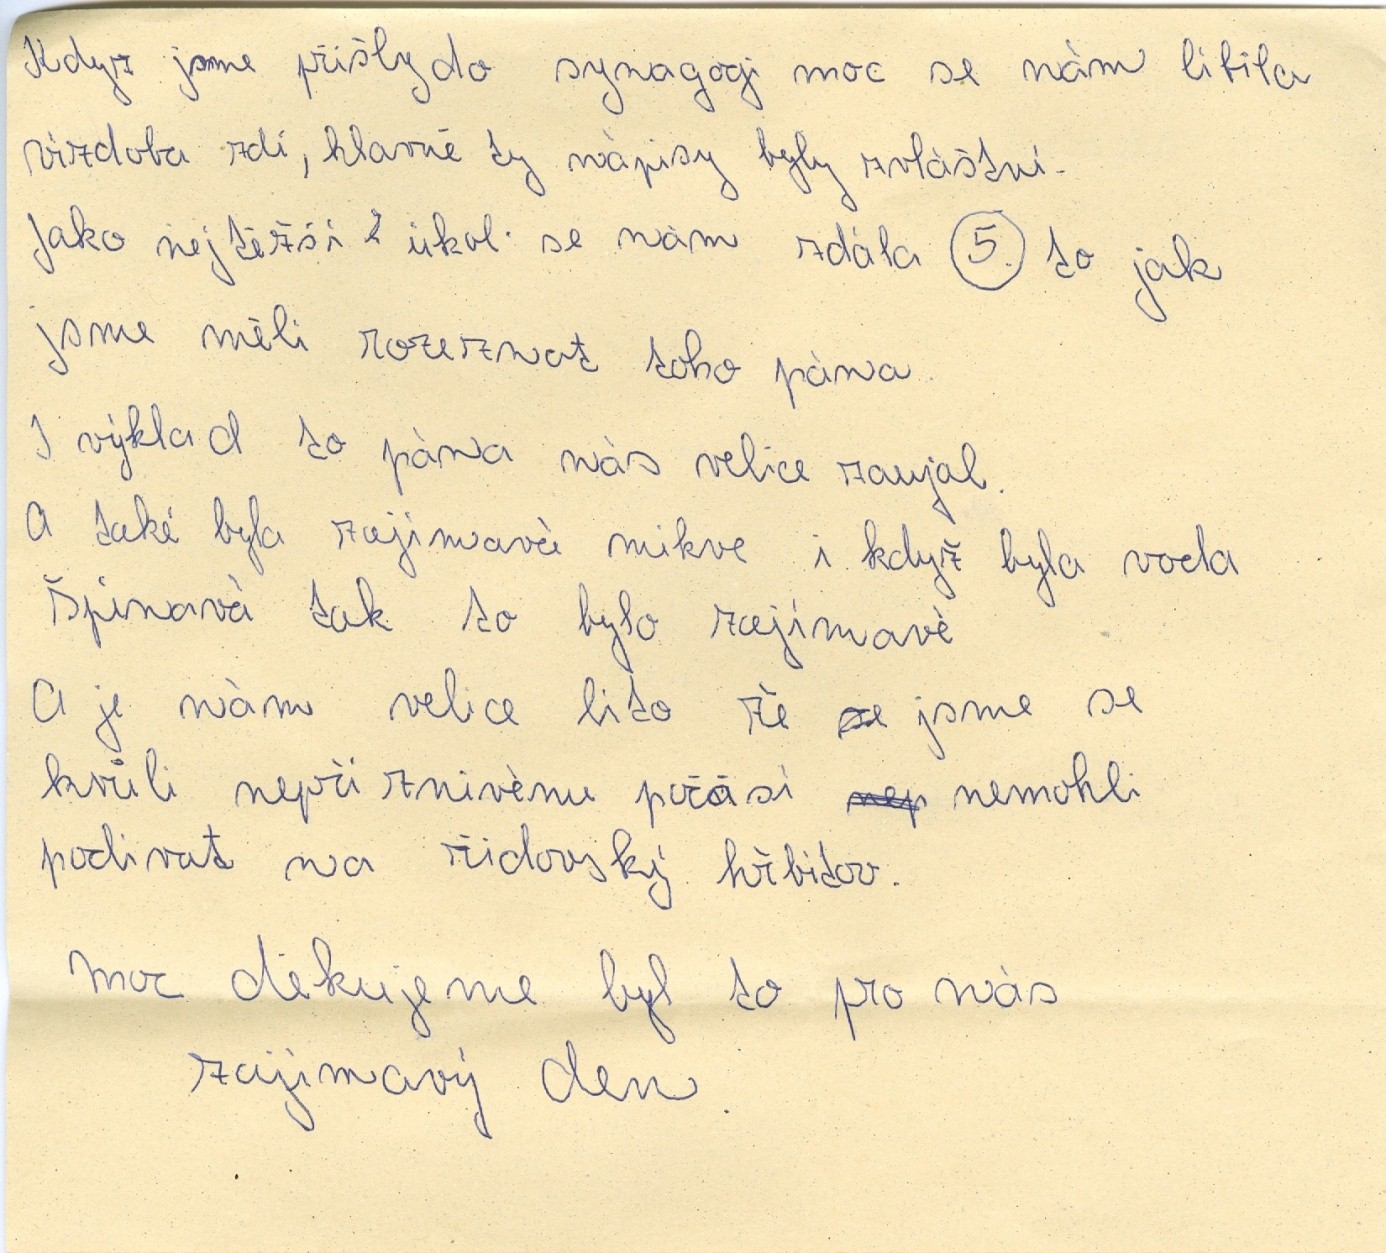 Kdyz jsme přišly do synagogi moc se nám libila
vizdoba zdí, hlavně ty nápisy byly zvláštní.
Jako nejtěžší úkol se nám zdála 5. to jak
jsme měli rozeznat toho pána.
I výklad to pána nás velice zaujal.
A také byla zajímavá mikve i když byla voda
špinavá tak to bylo zajímavé
A je nám velice lito že jsme se
kvůli nepříznivému počásí nemohli
podivat na židovský hřbitov.
Moc děkujeme byl to pro nás
zajímavý den.